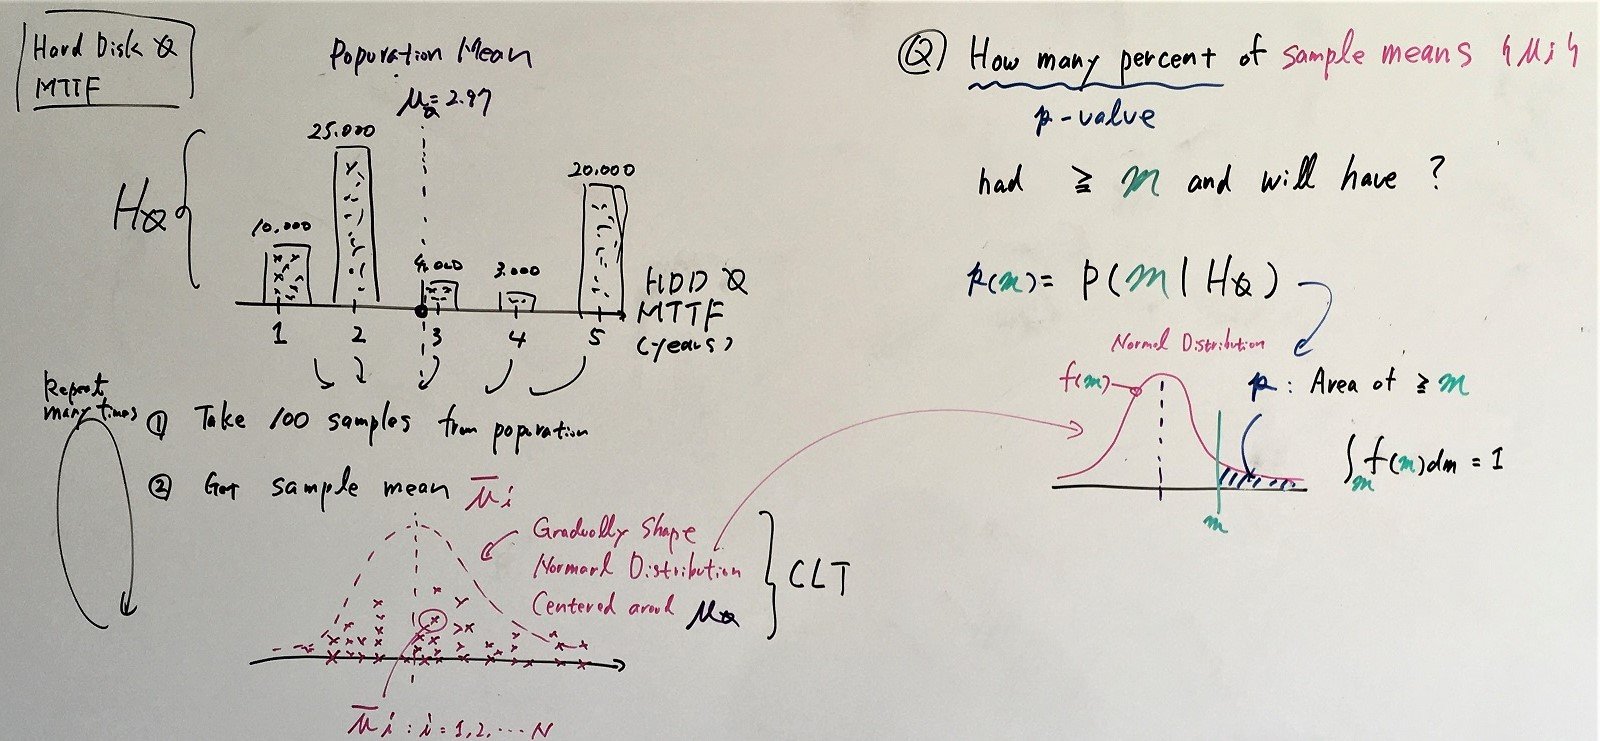 Hard Disk α
MTTF
Popuration Mean
μα = 2.97
25.000
20.000
10.000
4.000
3.000
Hα
HDD α
MTTF
(years)
1 2 3 4 5
Repeat
many times
① Take 100 samples from popuration
② Get sample mean μ̄i
Gradually Shape
Normarl Distribution
Centered aroud μα
CLT
μ̄i : i = 1,2, ... N
Q How many percent of sample means {μi}
p-value
had ≧ m and will have ?
p(m) = P(m | Hα)
Normal Distribution
f(m)
p : Area of ≧ m
∫m f(m)dm = 1
m